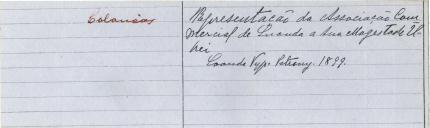 Colonias
Representação da Associação Com
mercial de Luanda a Sua Magestade El-
rei
Loanda Typ. Petrony. 1899.